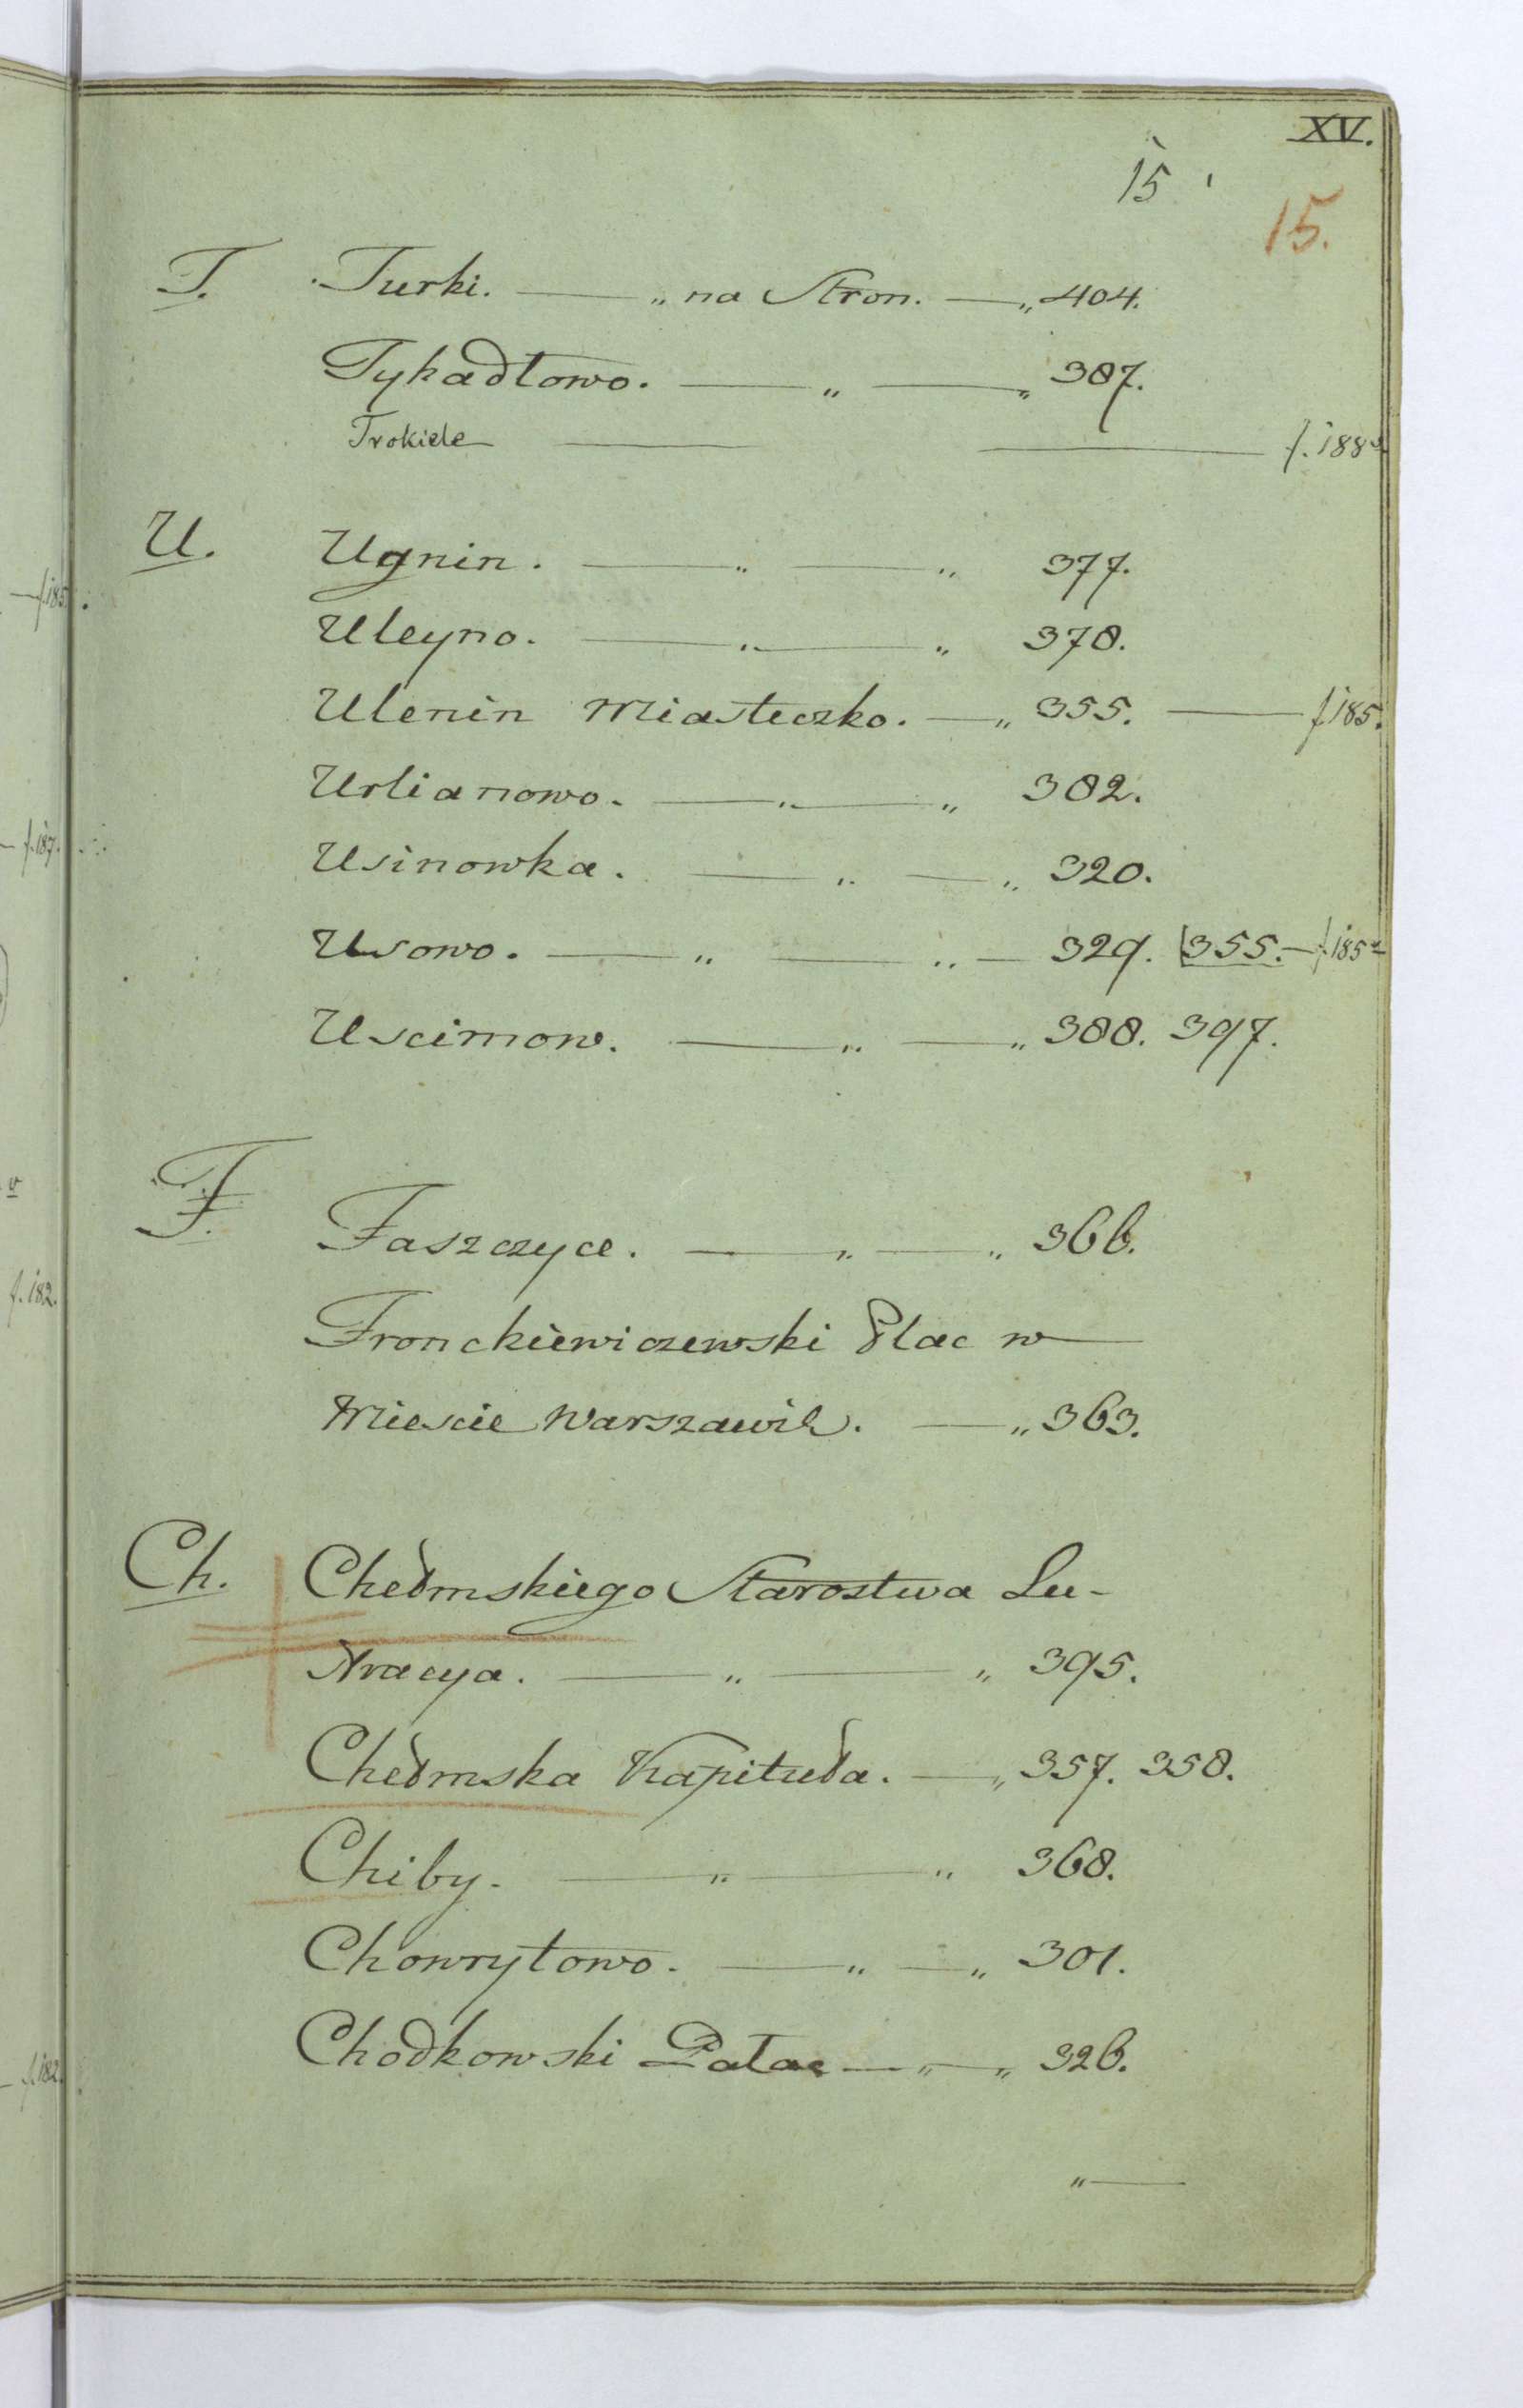 XV.
15
15.
T. Turki. — „ na Stron. — „ 404.
Tykadłowo. — „ — „ 387.
Trokiele — — f. 188v
U. Ugnin. — „ — „ 377.
Uleyno. — „ — „ 378.
Ulenin Miasteczko. — „ 355. — f 185.
Urlianowo. — „ — „ 382.
Usinowka. — „ — „ 320.
Usowo. — „ — „ — 329. 355. — f 185v
Uscimow. — „ — „ 388. 397.
F. Faszczyce. — „ — „ 366.
Fronckiewiczewski Plac w
Miescie Warszawie. — „ 363.
Ch. Chełmskiego Starostwa Lu-
stracya. — „ — „ 395.
Chełmska Kapituła. — „ 357. 358.
Chiby. — „ — „ 368.
Chowrytowo. — „ — „ 301.
Chodkowski Pałac — „ — „ 326.
„ —
f. 185
f. 187.
v
f. 182.
f. 182.